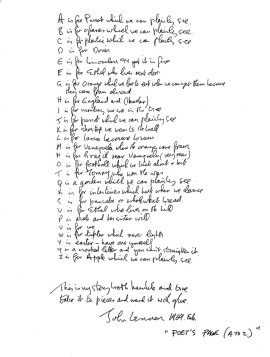 A is for Parrot which we can plainly see
B is for glasses which we can plainly see
C is for plastic which we can plainly see
D is for Doris
E is for binoculars I'll get it in five
F is for Ethel who lives next door
G is for Orange which we love to eat when we can get them because
they come from abroad
H is for England and (Heather)
I is for monkey we see in the tree
J is for parrot which we can plainly see
K is for shoetop we wear to the ball
L is for Land because brown
M is for Venezuela where the oranges come from
N is for Brazil near Venezuela (very near)
O is for football which we kick about a bit
T is for Tommy who won the war
Q is a garden which we can plainly see
R is for intestines which hurt when we dance
S is for pancake or whole-wheat bread
U is for Ethel who lives on the hill
P is arab and her sister will
V is for me
W is for lighter which never lights
X is easter - have one yourself
Y is a crooked letter and you can't straighten it
Z is for Apple which we can plainly see
This is my story both humble and true
take it to pieces and mend it with glue
John Lennon 1969. Feb.
"POET'S PAGE (A TO Z)"